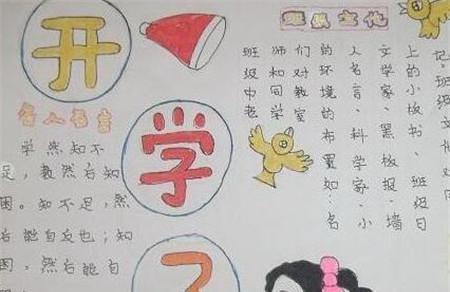 开
学
了
名人名言
学然知不
足，教然后知
困。知不足，然
后能自反也；知
困，然后能自
班级文化
班级中老
师和同学
们对教室
的环境的布置如：名
人名言、科学家、小
文学家、黑板报、墙
上的小板书、班级日
记。班级文化对同